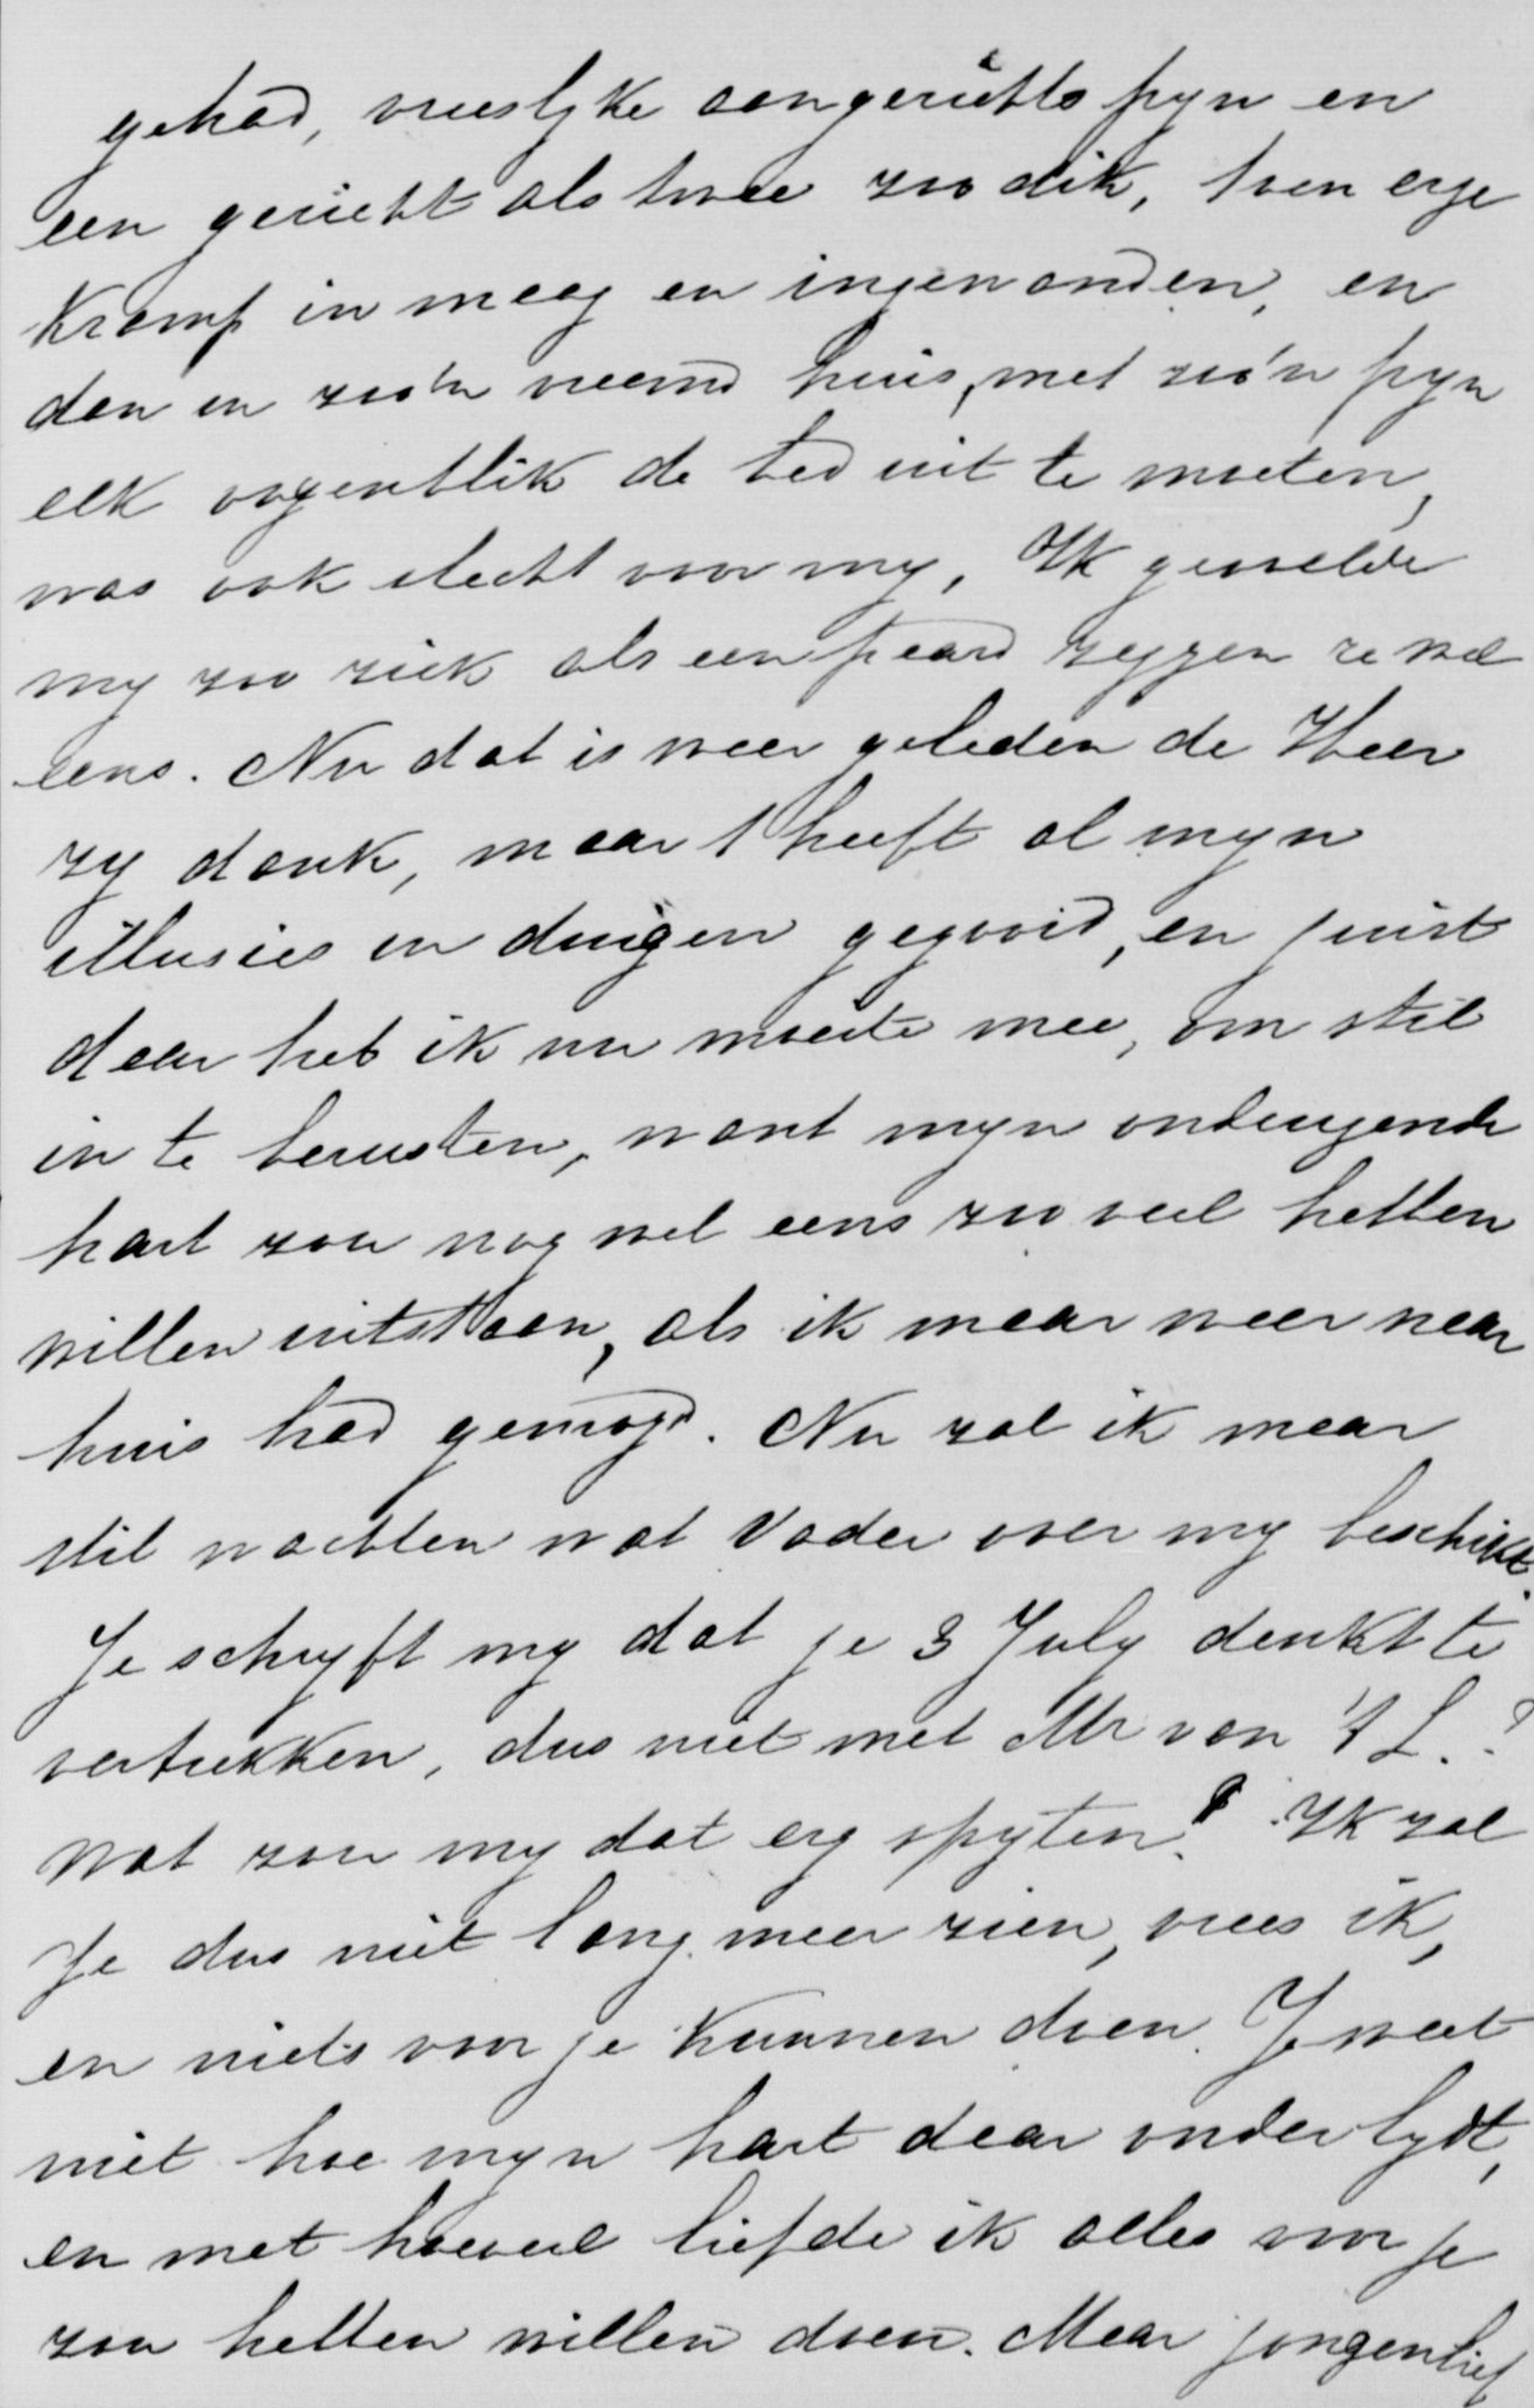 gehad, vreeslyke aangezichtspyn en
een gezicht als twee zoo dik, toen erge
Kramp in maag en ingewanden, en
dan in zoo'n vreemd huis, met zoo'n pyn
elk oogenblik de bed uit te moeten,
was ook slecht voor my, Ik gevoelde
my zoo ziek als een paard zeggen ze wel
eens. Nu dat is weer geleden de Heer
zy dank, maar 't heeft al myn
illusies in duigen gegooid, en juist
daar heb ik nu moeite mee, om stil
in te berusten, want myn ondeugende
hart zou nog wel eens zooveel hebben
willen uitstaan, als ik maar weer naar
huis had gemogd. Nu zal ik maar
stil wachten wat Vader over my beschikt.
Je schryft my dat je 3 July denkt te
vertrekken, dus niet met Mr van 't L.?
Wat zou my dat erg spyten! Ik zal
Je dus niet lang meer zien, vrees ik,
en niets voor je Kunnen doen. Je weet
niet hoe myn hart daar onder lydt,
en met hoeveel liefde ik alles voor je
zou hebben willen doen. Maar jongenlief